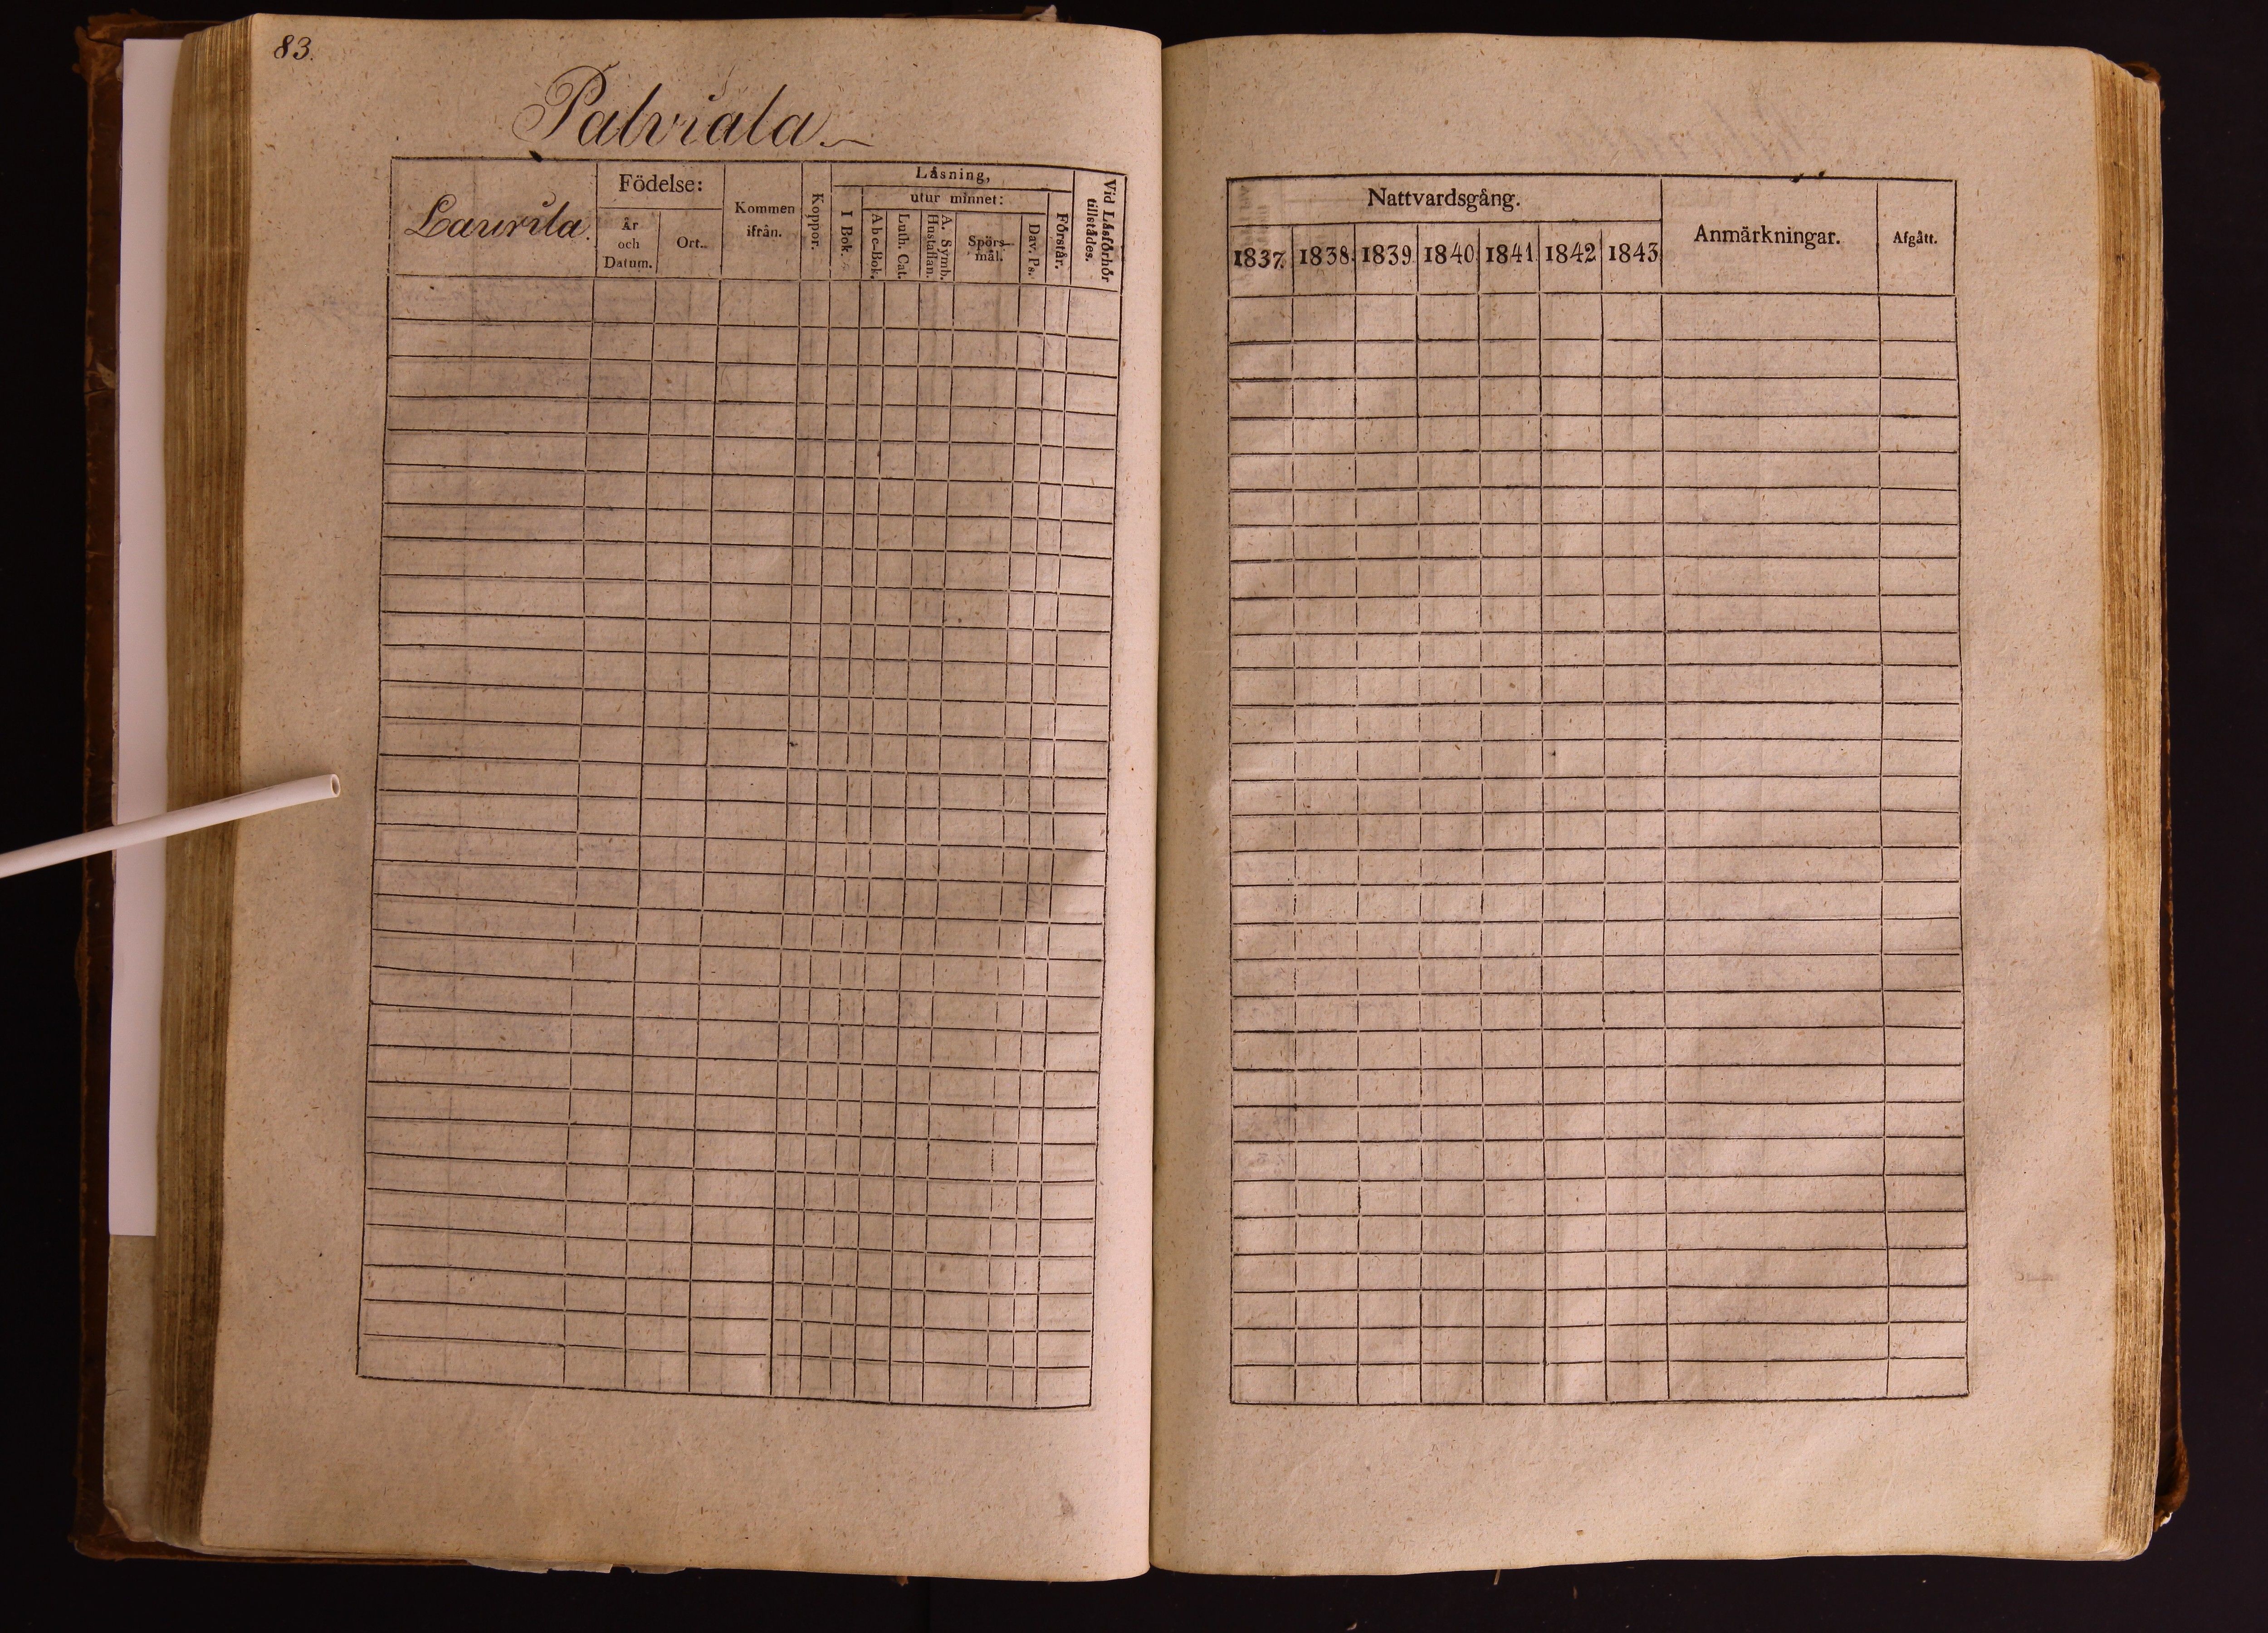 83.
Palviala
Laurila.
Födelse:
År
och
Datum.
Ort.
Kommen
ifrån.
Koppor.
Läsning,
utur minnet:
I Bok.
Abc-Bok.
Luth. Cat.
A. Symb.
Hustaflan.
Spörs-
mål.
Dav. Ps.
Förstår.
Vid Läsförhör
tillstädes.
Nattvardsgång.
1837. 1838. 1839 1840 1841 1842 1843
Anmärkningar.
Afgått.